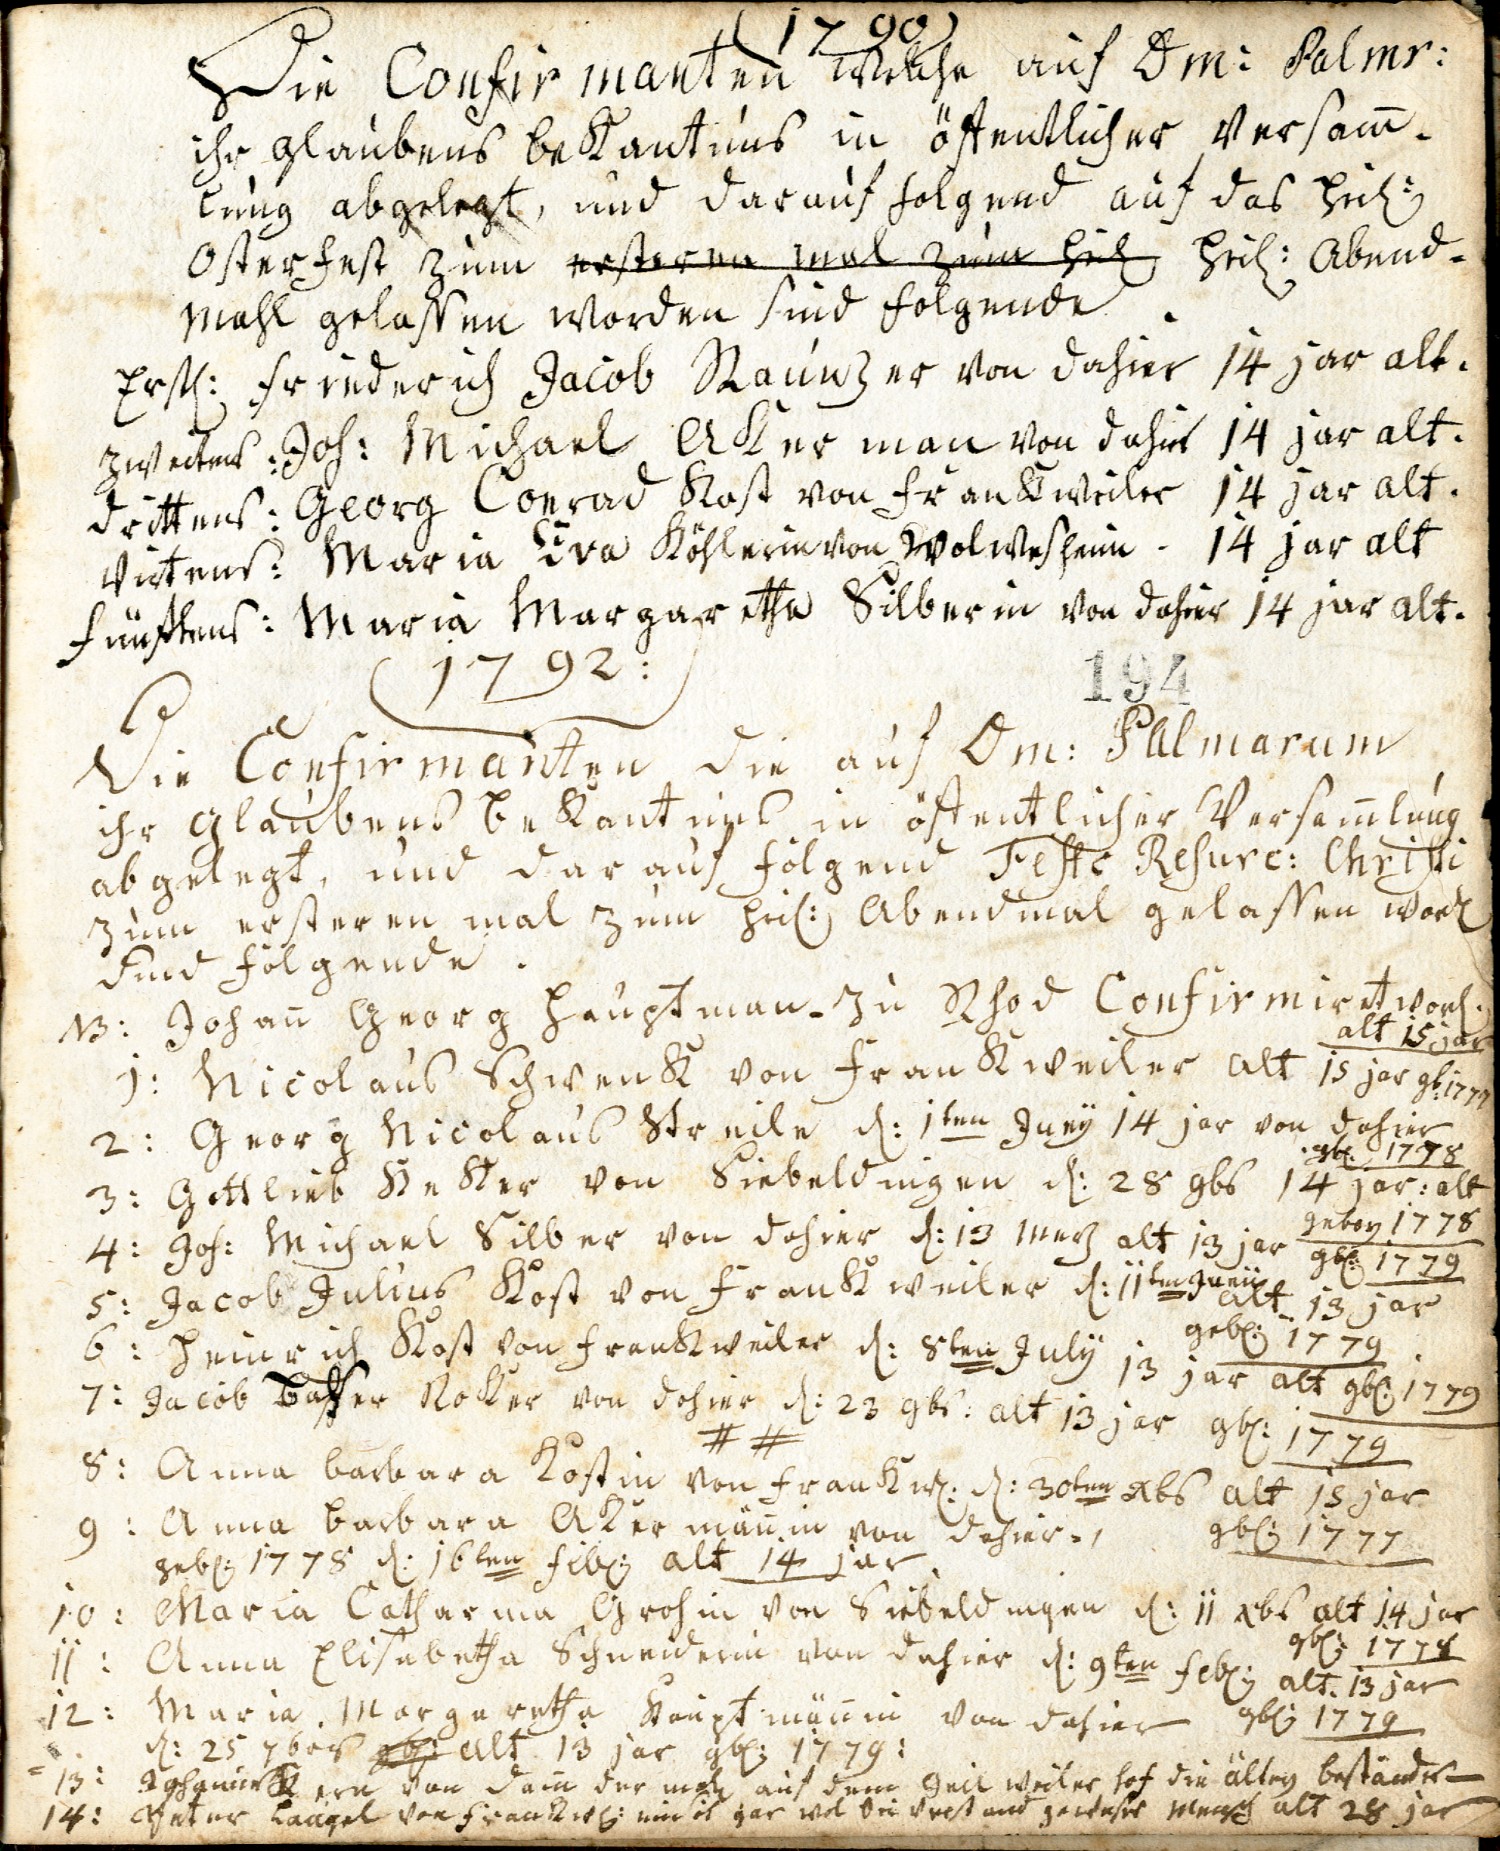 (1790)
Die Confirmanten welche auf Dm: Palmr:
ihr glaubens beKantnus in öffentlicher Versam̅-
lung abgelegt, und darauf folgend auf das heil:
Osterfest zum ersteren mal zum heil heil: Abend-
mahl gelassen worden sind folgende.
Erstl: Friederich Jacob Raunzer von dahier 14 jar alt.
zweitens: Joh: Michael AKerman von dahier 14 jar alt.
drittens: Georg Conrad Kost von FranKweiler 14 jar alt.
Virtens: Maria Eva Köhlerin von Wolmesheim - 14 jar alt
fünftens: Maria Margaretha Silberin von dahier 14 jar alt.
1792:
194
Die Confirmanten die auf Dm: Palmarum
ihr glaubens beKantnus in öffentlicher Versam̅lung
abgelegt, und darauf folgend Festo Resurc: Christi
zum ersteren mal zum heil: Abendmal gelassen word
sind folgende.
NB: Johan̅ Georg Hauptman - zu Rhod Confirmirt word.
alt 15 jar
1: Nicolaus SchwenK von FranKweiler alt 15 jar gb: 1777
2: Georg Nicolaus Streile d: 1ten Juny 14 jar von dahier
gb: 1778
3: Gottlieb KeKer von Siebeldingen d: 28 9bs 14 jar: alt
geborn 1778
4: Joh: Michael Silber von dahier d: 13 Merz alt 13 jar gb: 1779
5: Jacob Julius Kost von FranKweiler d: 11ten Juny alt 13 jar
geb: 1779
6: Heinrich Kost von FranKweiler d: 8ten July 13 jar alt gb: 1779
7: Jacob Balser RoKer von dahier d: 23 9bs: alt 13 jar gb: 1779
# #
8: Anna barbara Kostin von FranKw: d: 30ten xbs alt 15 jar
gb: 1777
9: Anna barbara AKermän̅in von dahier.
geb: 1778 d: 16ten feb: alt 14 jar
10: Maria Catharina Grohin von Siebeldingen d: 11 xbs alt 14 jar
gb: 1778
11: Anna Elisabetha Schneiderin von dahier d: 9ten feb: alt. 13 jar
gb: 1779
12: Maria Margaretha Hauptmän̅in von dahier
d: 25 7bers gb: alt 13 jar gb: 1779:
13: von dem auf dem Geilweiler hof die ältern beständer
14: Peter von FranKw: gar Mensch alt 28 jar